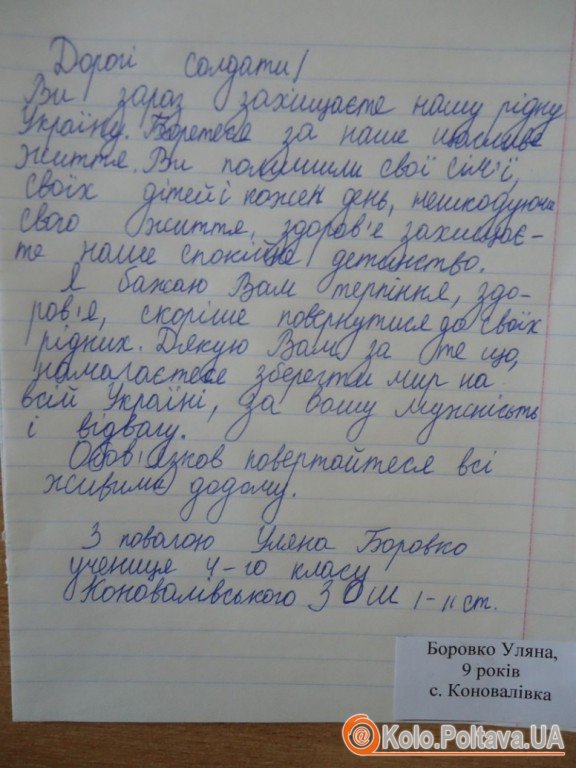 Дорогі солдати!
Ви зараз захищаєте нашу рідну
Україну. Боретеся за наше щасливе
життя. Ви полишили свої сім'ї,
своїх дітей і кожен день, нешкодуючи
свого життя, здоров'є захищає-
те наше спокійне детинство.
Я бажаю Вам терпіння, здо-
ров'я, скоріше повернутися до своїх
рідних. Дякую Вам за те що,
намагаєтесе зберегти мир на
всій Україні, за вашу мужнісьть
і відвагу.
Обов'язков повертайтеся всі
живими додому.
З повагою Уляна Боровко
учениця 4-го класу
Коновалівського ЗОШ І-ІІ ст.
Боровко Уляна,
9 років
с. Коновалівка
Kolo.Poltava.UA